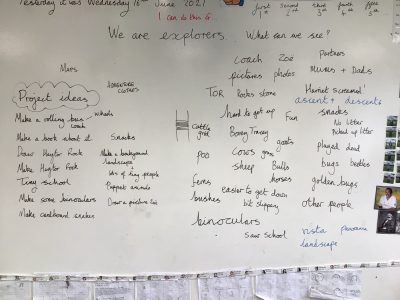 Yesterday it was Wednesday 16th June 2021
I can do this
first second third fourth fifth
1st 2nd 3rd 4th 5th
We are explorers. What can we see?
Maps
ADVENTURER CLOTHES
Project ideas
Make a rolling bus coach wheels
Make a book about it
Draw Haytor Rock
Make Haytor Rock
Tiny school
Make some binoculars
Make cardboard snakes
Snacks
Make a background landscapes
lots of tiny people
Puppets animals
Draw a picture
Coach Zoe
pictures photos
TOR rocks stone
hard to get up Fun
cattle grid
Bovey Tracey
goats
poo
cows grass
sheep Bulls
horses
ferns
bushes
easier to get down
bit slippy
binoculars
saw school
Partners
Mums + Dads
Harriet screamed!
ascent + descent
snacks
No litter
Picked up litter
played dead
bugs beetles
golden bugs
other people
vista panorama
landscape